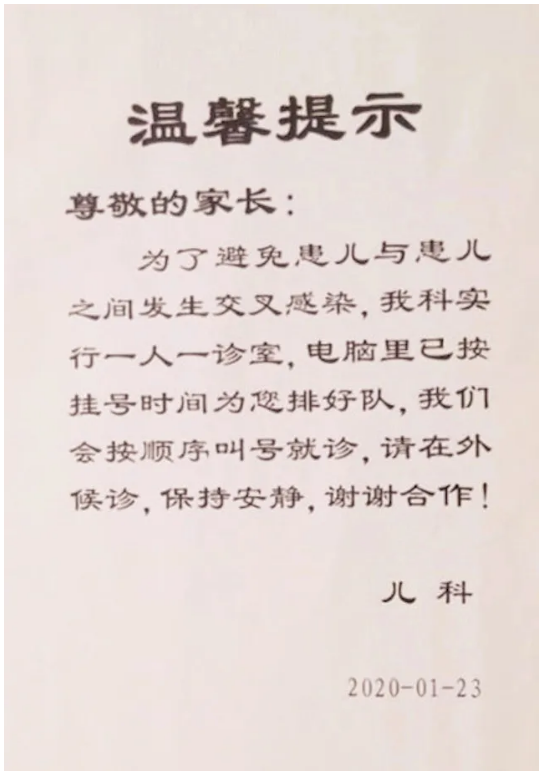 温馨提示
尊敬的家长：
为了避免患儿与患儿
之间发生交叉感染，我科实
行一人一诊室，电脑里已按
挂号时间为您排好队，我们
会按顺序叫号就诊，请在外
候诊，保持安静，谢谢合作！
儿 科
2020-01-23